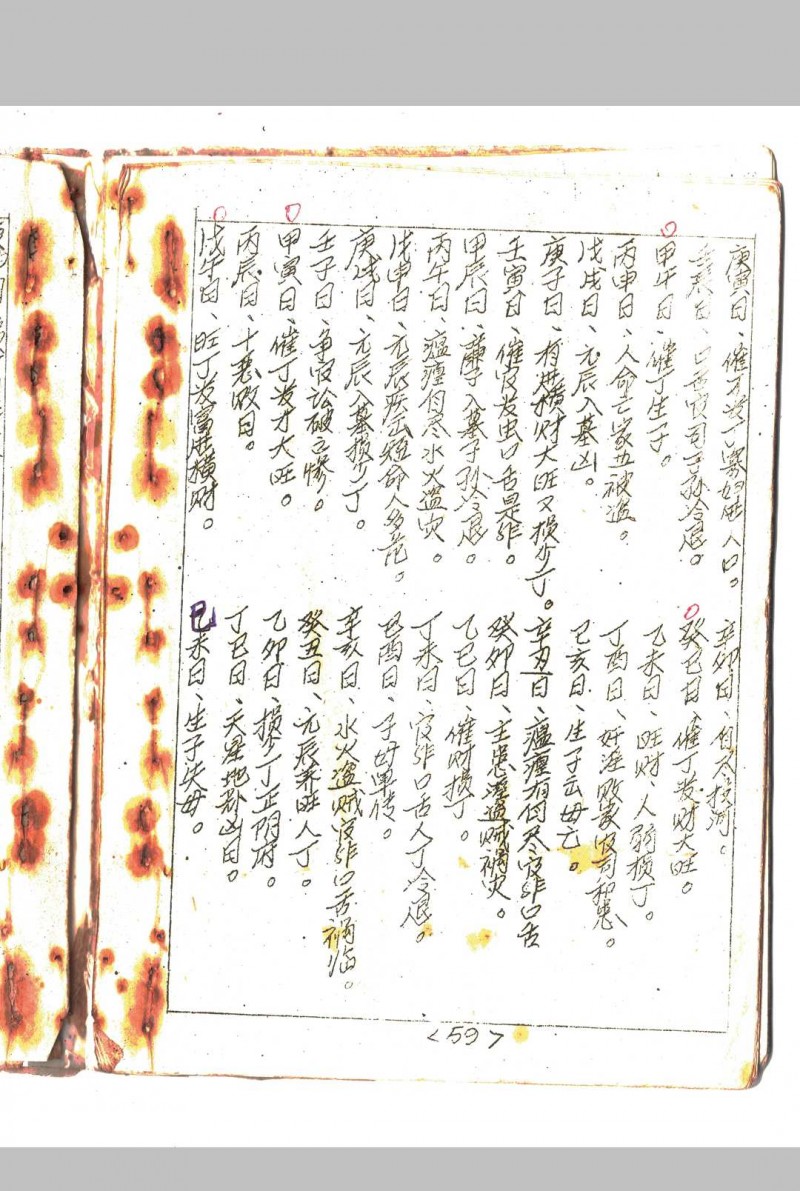 庚寅日、催才发丁寡妇进人口。
辛卯日、自尽投河。
壬辰日、口舌官司子孙冷退。
癸巳日、催丁发财大旺。
甲午日、催丁生子。
乙未日、旺财、人弱损丁。
丙申日、人命亡家五被盗。
丁酉日、奸淫败官司和患。
戊戌日、元辰入墓凶。
己亥日、生子云母亡。
庚子日、有进横财大旺又损少丁。
辛丑日、瘟瘴有自尽官非口舌
壬寅日、催官发虫口舌是非。
癸卯日、主患盗贼祸灾。
甲辰日、入墓子孙冷退。
乙巳日、催财损丁。
丙午日、瘟瘴自尽水火盗灾。
丁未日、官非口舌人丁冷退。
戊申日、元辰短命人多
己酉日、子母单传。
庚戌日、元辰入墓损少丁。
辛亥日、水火盗贼官非口舌祸临。
壬子日、争官讼破之惨。
癸丑日、元辰养旺人丁。
甲寅日、催丁发才大旺。
乙卯日、损少丁正阴府。
丙辰日、十恶败日。
丁巳日、天星地都凶日。
戊午日、旺丁发富进横财。
己未日、生子失母。
<59>